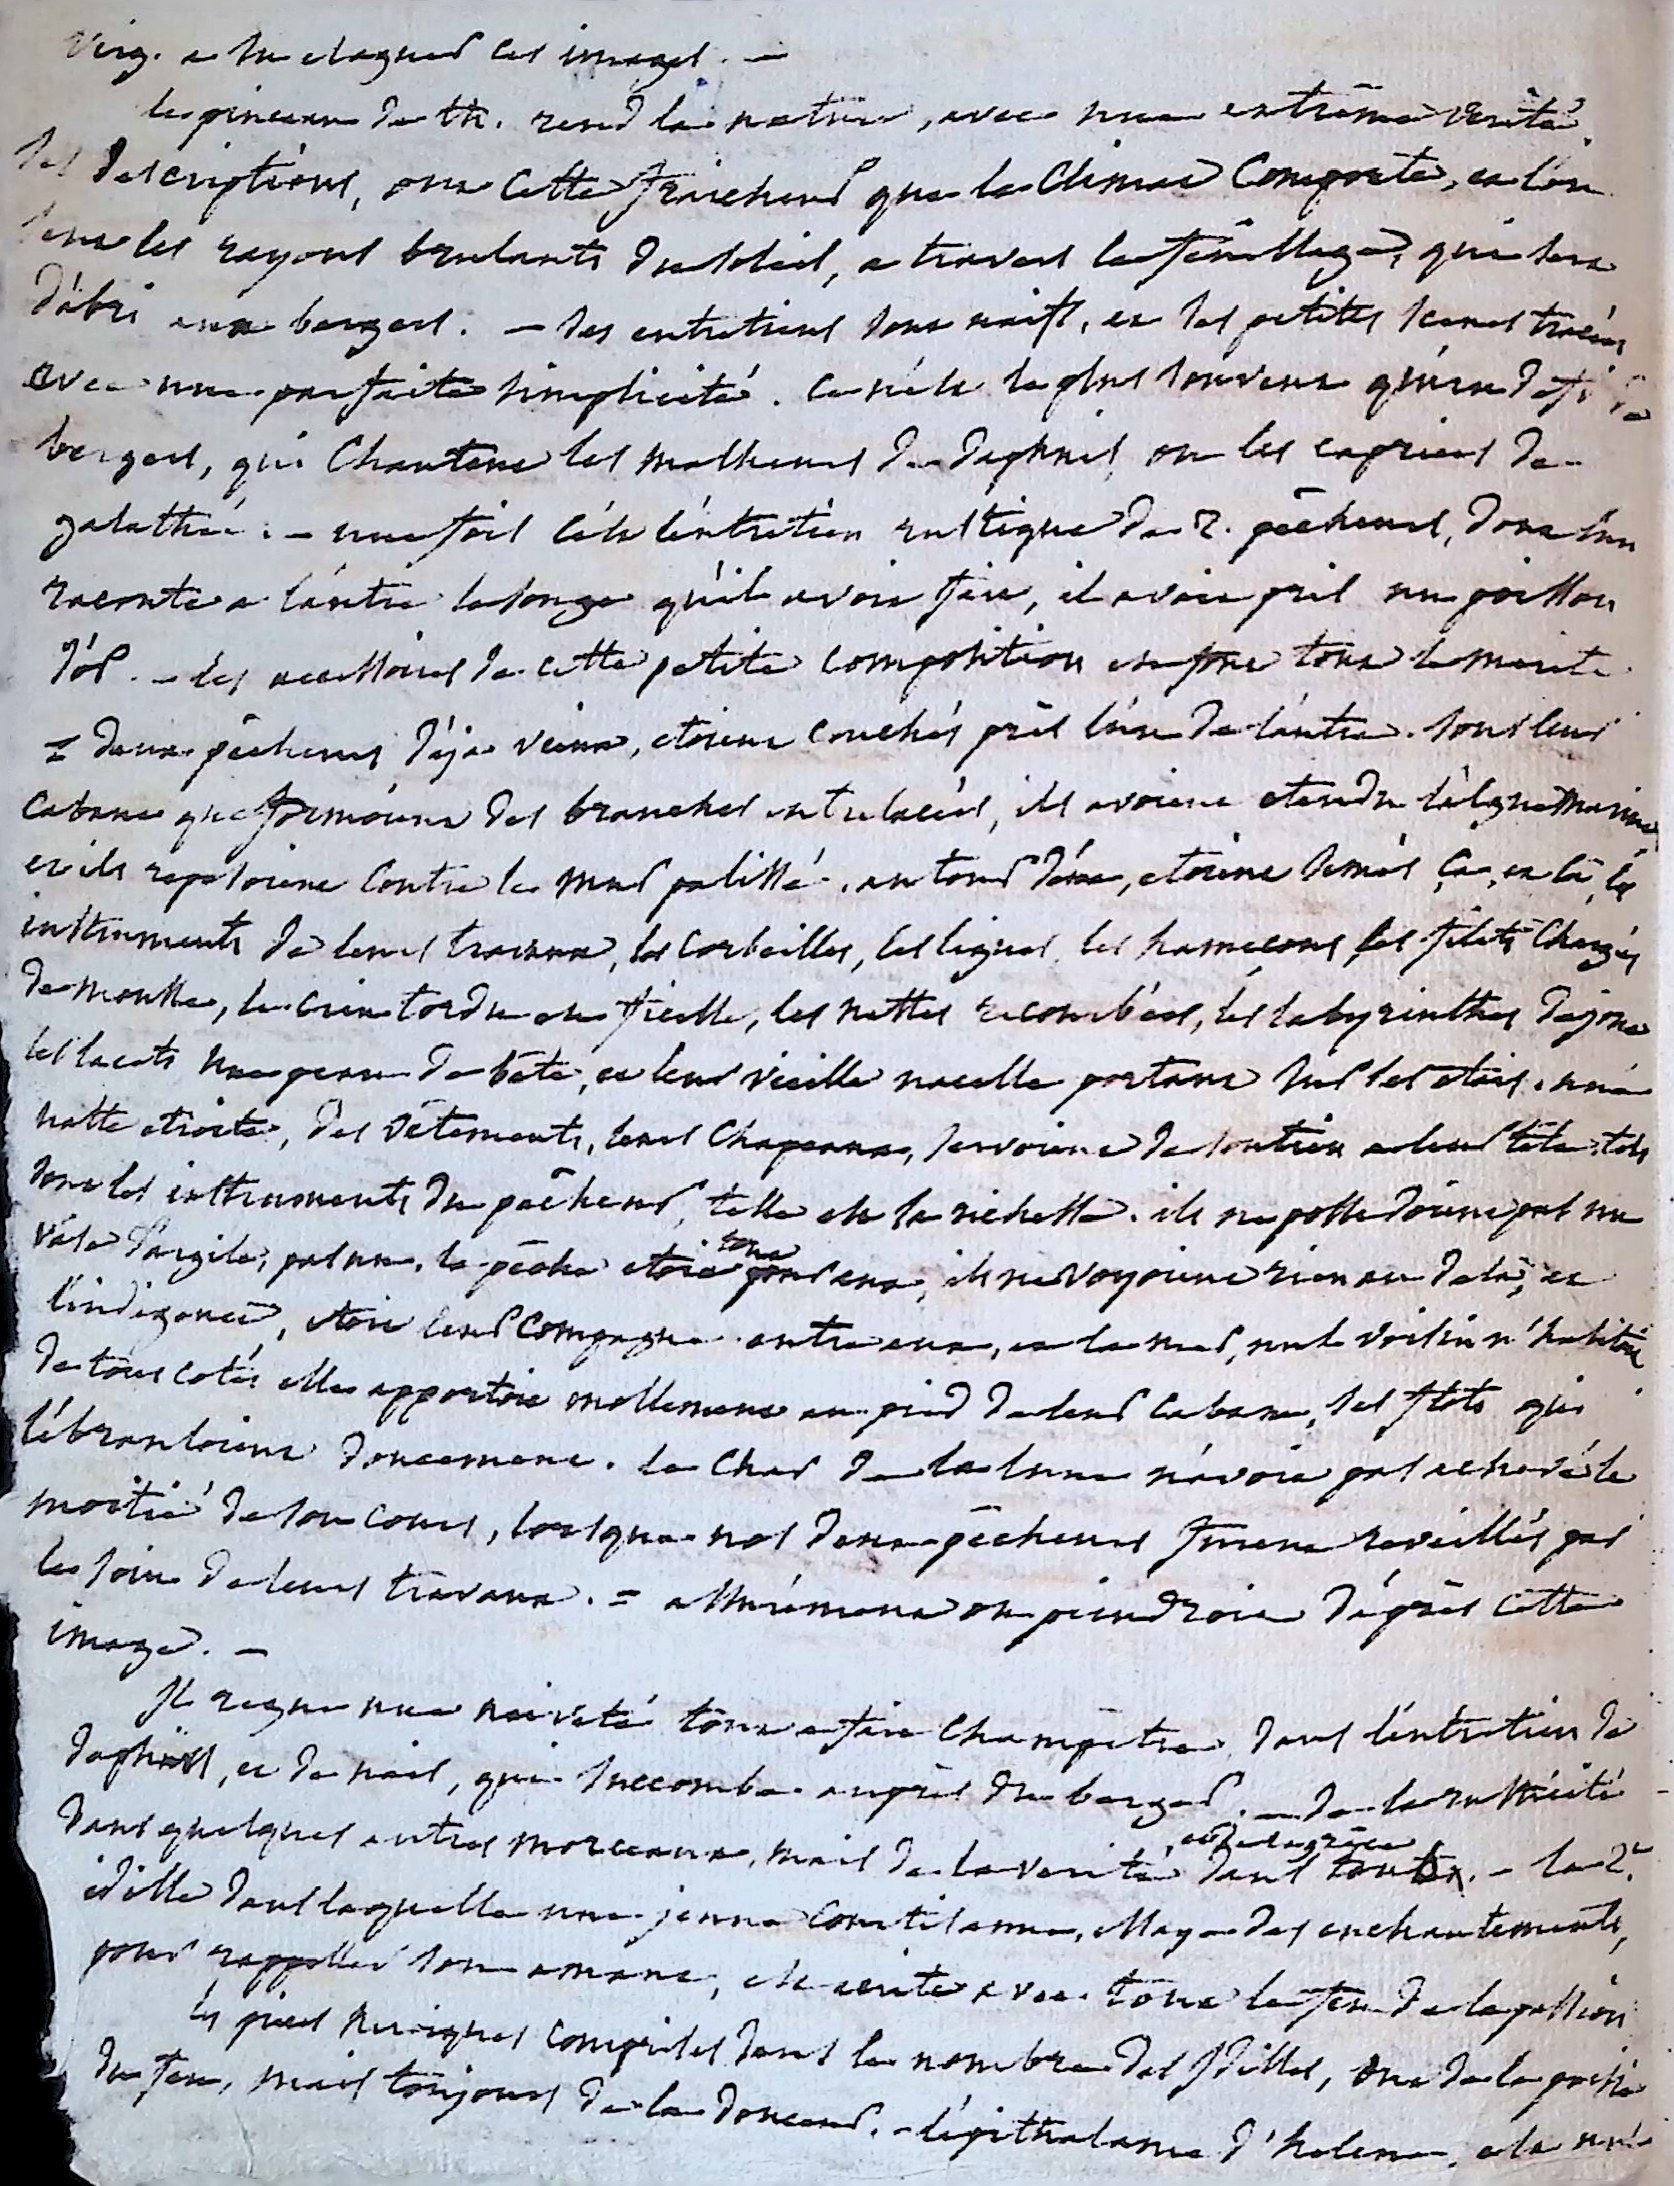 Virg. a su elaguer ces images. —
le pinceau de th. rend la nature, avec une extrême verité.
ses descriptions, ont cette fraicheur que le climat comporte, et l'on
sent les rayons brulants du soleil, a travers le feuillage, qui sert
d'abri aux bergers. — ses entretiens sont naifs, et ses petites scenes tracées
avec une parfaite simplicité. ce n'est le plus souvent qu'un defi de
bergers, qui chantent les malheurs de daphnis ou les caprices de
galathée. — une fois c'est l'entretien rustique de 2. pêcheurs, dont l'un
raconte a l'autre le songe qu'il avoit fait, il avoit pris un poisson
d'or. — les accessoires de cette petite composition en font tout le merite
= deux pêcheurs déja vieux, etoient couchés près l'un de l'autre. sous leur
cabane que formoient des branches entrelacées, ils avoient etendu l'algue marine,
et ils reposoient contre le mur palissé. autour d'eux, etoient semés ça, et là, les
instruments de leurs travaux, les corbeilles, les lignes, les hameçons, les filets chargés
de mousse, le crin tordu en ficelle, les nattes recourbées, les labyrinthes de jonc
les lacets une peau de bête, et leur vieille nacelle portant sur les etais. une
natte etroite, des vêtements, leurs chapeaux, servoient de soutien a leur tête. tels
sont les instruments du pêcheur, telle est sa richesse. ils ne possedoient pas un
vase d'argile, pas un. la pêche etoit tout pour eux, ils ne voyoient rien au dela, et
l'indigence, etoit leur compagne. entre eux, et la mer, nul voisin n'habitoit
de tous cotés elle apportoit mollement au pied de leur cabane, ses flots qui
l'ébranloient doucement. le char de la lune n'avoit pas achevé la
moitié de son cours, lorsque nos deux pêcheurs furent reveillés par
le soin de leurs travaux. = assurément on peindroit d'après cette
image. —
Il regne une naiveté tout a fait champêtre, dans l'entretien de
daphnis, et de nais, qui succombe auprès du berger. — de la rusticité
dans quelques autres morceaux, mais de la verité, et de la grace dans tous. — la 2e.
idille dans laquelle une jeune courtisanne, essaye des enchantements,
pour rappeller son amant, est ecrite avec tout le feu de la passion
les pieces heroiques comprises dans le nombre des Idilles, ont de la poesie
du feu, mais toujours de la douceur. — l'epithalame d'helene, a la